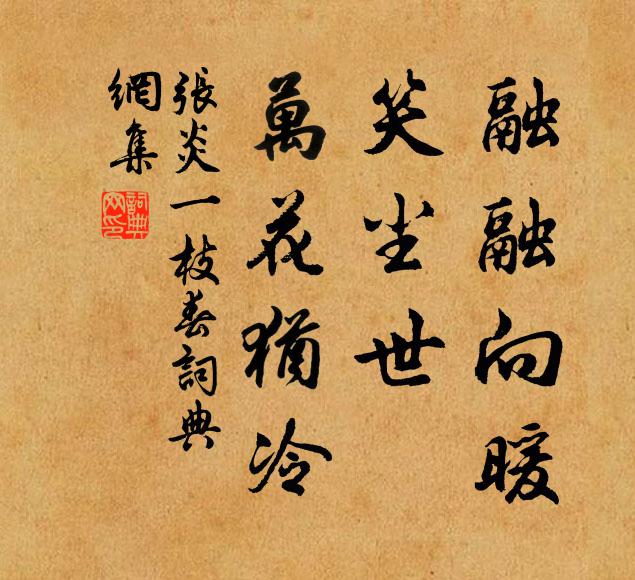 融融向暖
笑尘世
萬花猶冷
張炎一枝春詞典
網集
詞典網印